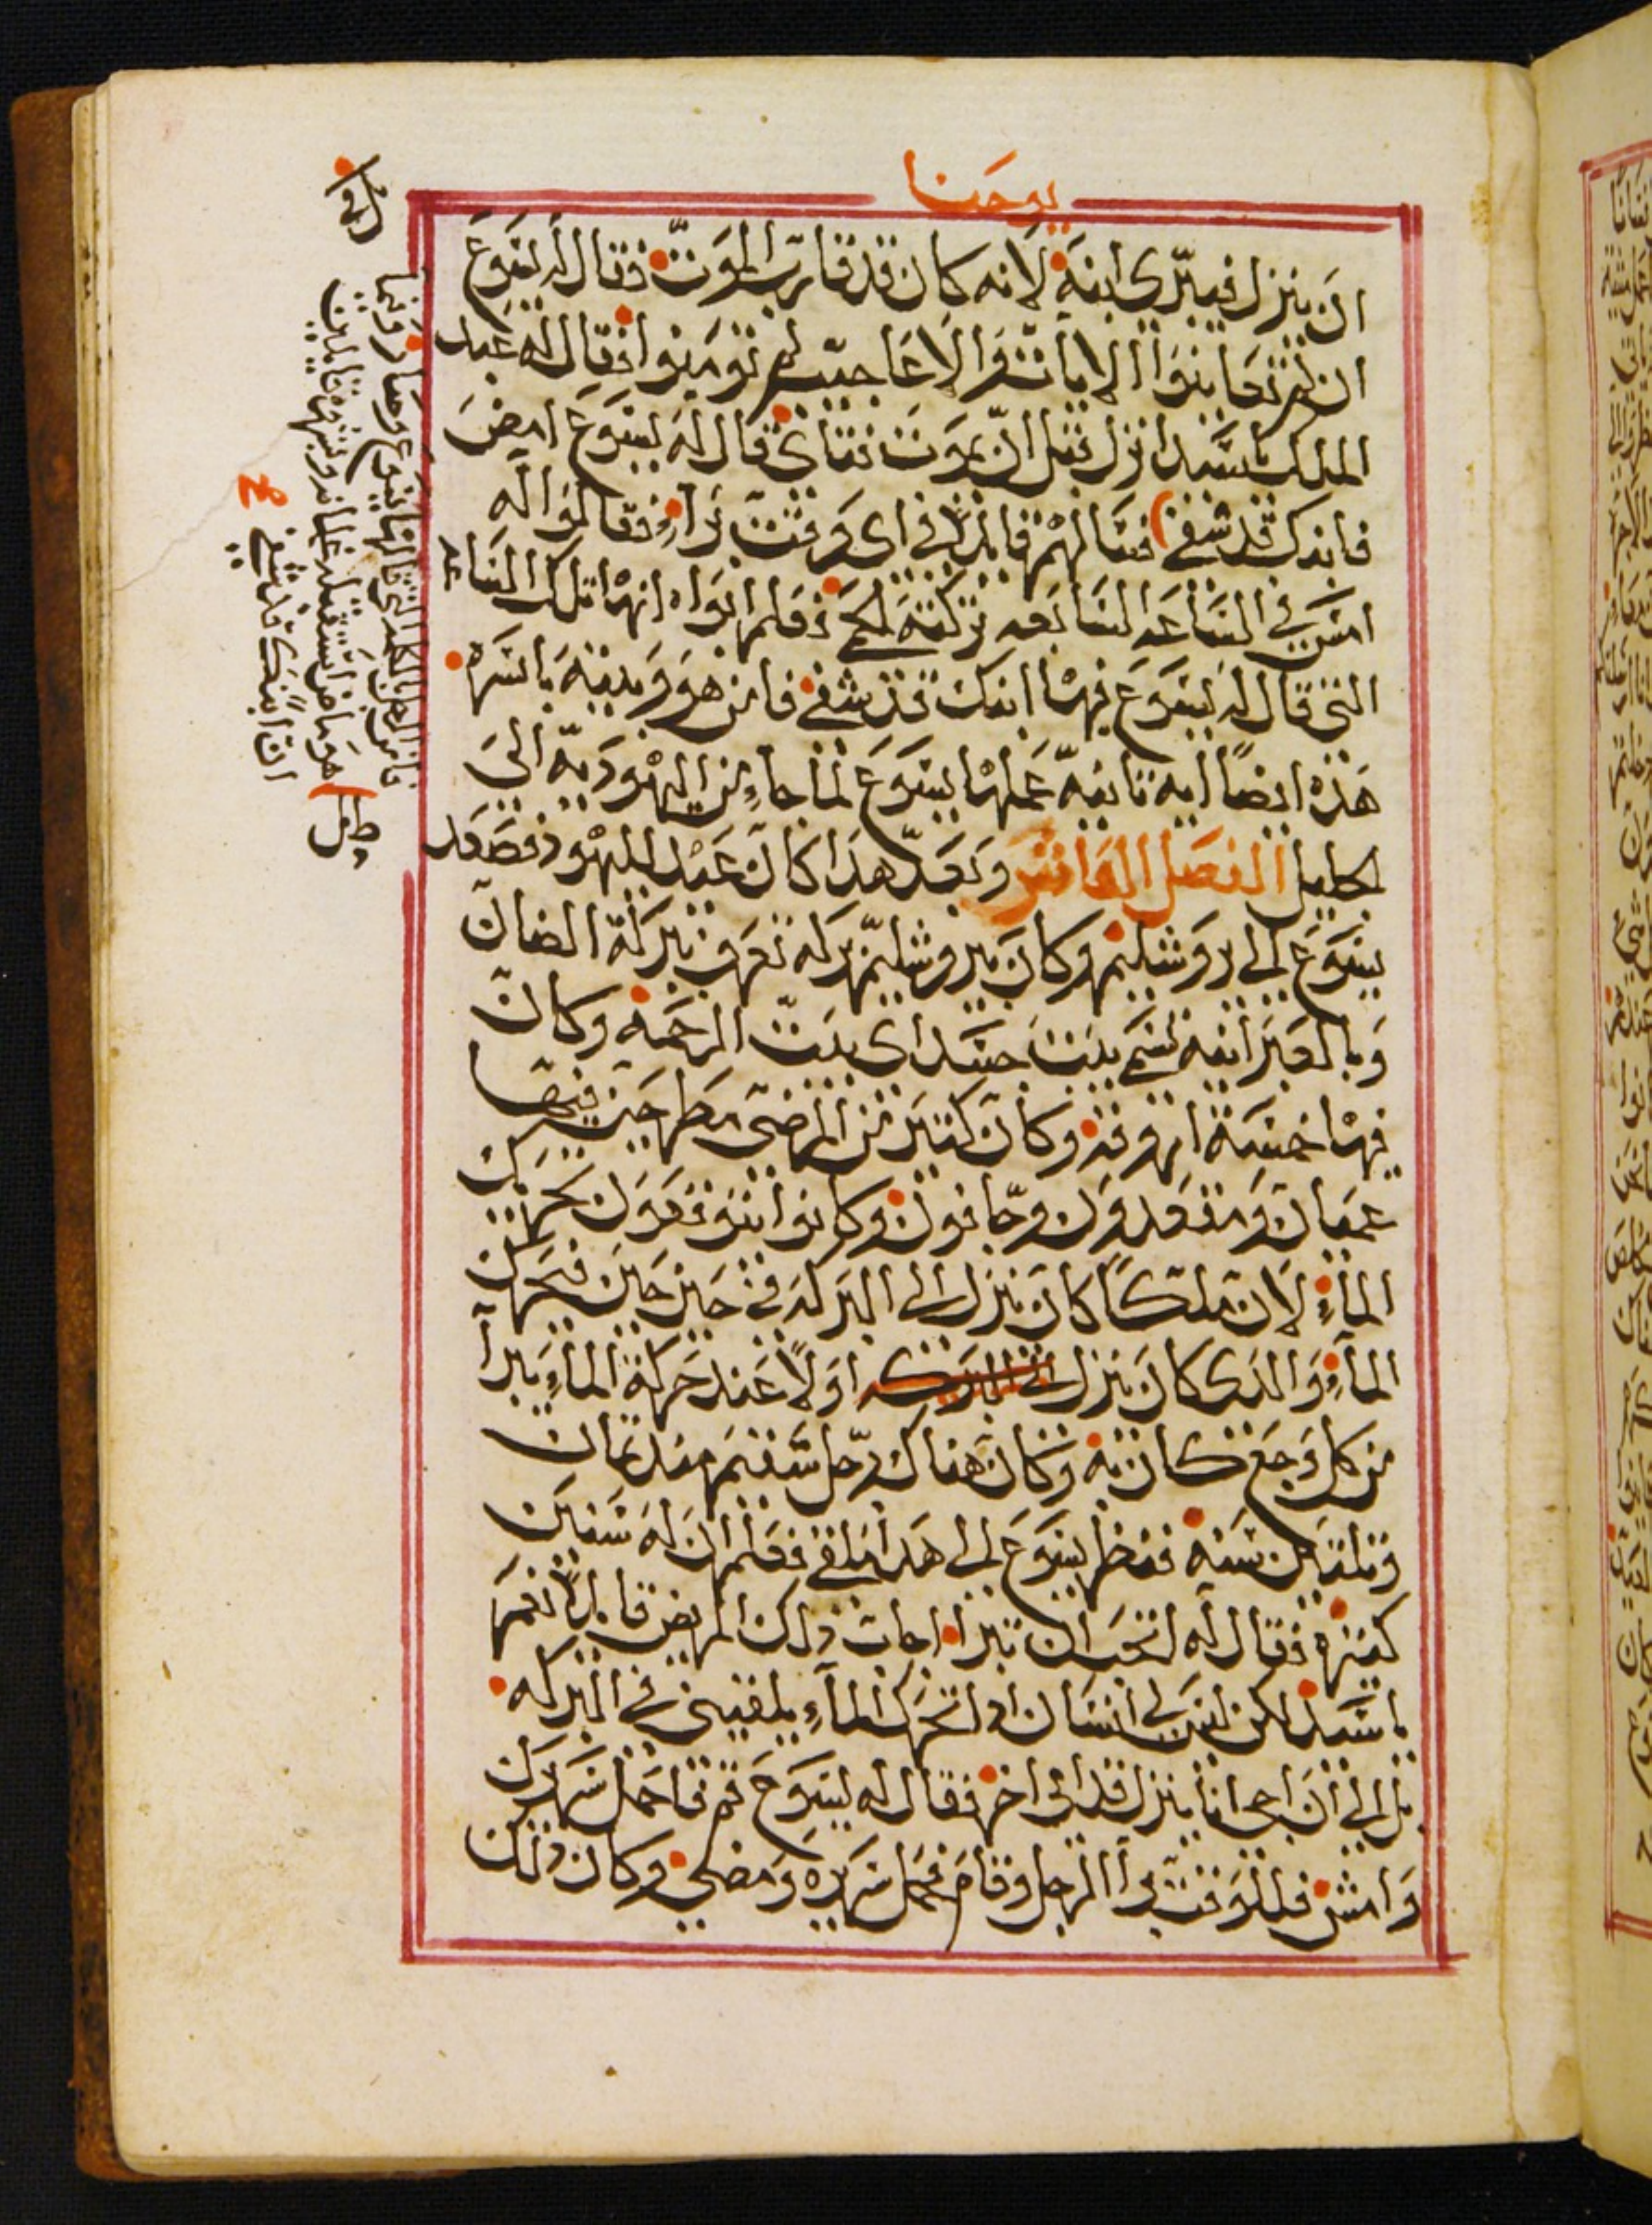 يوحنا
ان ينزل فيبرى ابنه لانه كان قد قارب الموت فقال له يسوع
ان لم تعاينوا الايات والاعاجيب لم تومنوا فقال له عبد
الملك يا سيد انزل قبل ان يموت فتاى قال له يسوع امض
فابنك قد شفي فسالهم قايلا في اى وقت براء فقالوا له
امس في الساعه السابعه تركته الحمى فعلم ابواه انها تلك الساعه
التي قال له يسوع فيها ابنك قد شفي فامن هو وبيته باسره
هذه ايضاً ايه ثانيه عملها يسوع لما جاء من اليهوديه الى
الجليل الفصل الخامس وبعد هذا كان عيد اليهود فصعد
يسوع الى اروشليم وكان بيروشليم بركه تعرف ببركة الضان
وبالعبرانيه تسمى بيت حسدا اى بيت الرحمه وكان
فيها خمسة اروقه وكان كثير من المرضى مطرحين فيها
عميان ومقعدون وجافون وكانوا يتوقعون تحريك
الماء لان ملاكاً كان ينزل الى البركه في حين حين فيحرك
الماء والذى كان ينزل الى البركه اولاً عند حركة الماء يبرا
من كل وجع كان به وكان هناك رجل سقيم منذ ثمان
وثلثين سنه فنظر يسوع الى هذا ملقى فعلم ان له سنين
كثيره فقال له اتحب ان تبرا اجاب ذلك المريض قايلا نعم
يا سيد لكن ليس لي انسان اذا تحرك الماء يلقيني في البركه
بل الى ان اجي انا ينزل قدامى اخر فقال له يسوع قم فاحمل سريرك
وامش فللوقت برا الرجل وقام فحمل سريره ومضى وكان ذلك
فامن الرجل بالكلمه التي قالها يسوع وصار وفيما
هو ماض استقبله غلمانه وبشروه قايلين
ان ابنك قد شفي
صح